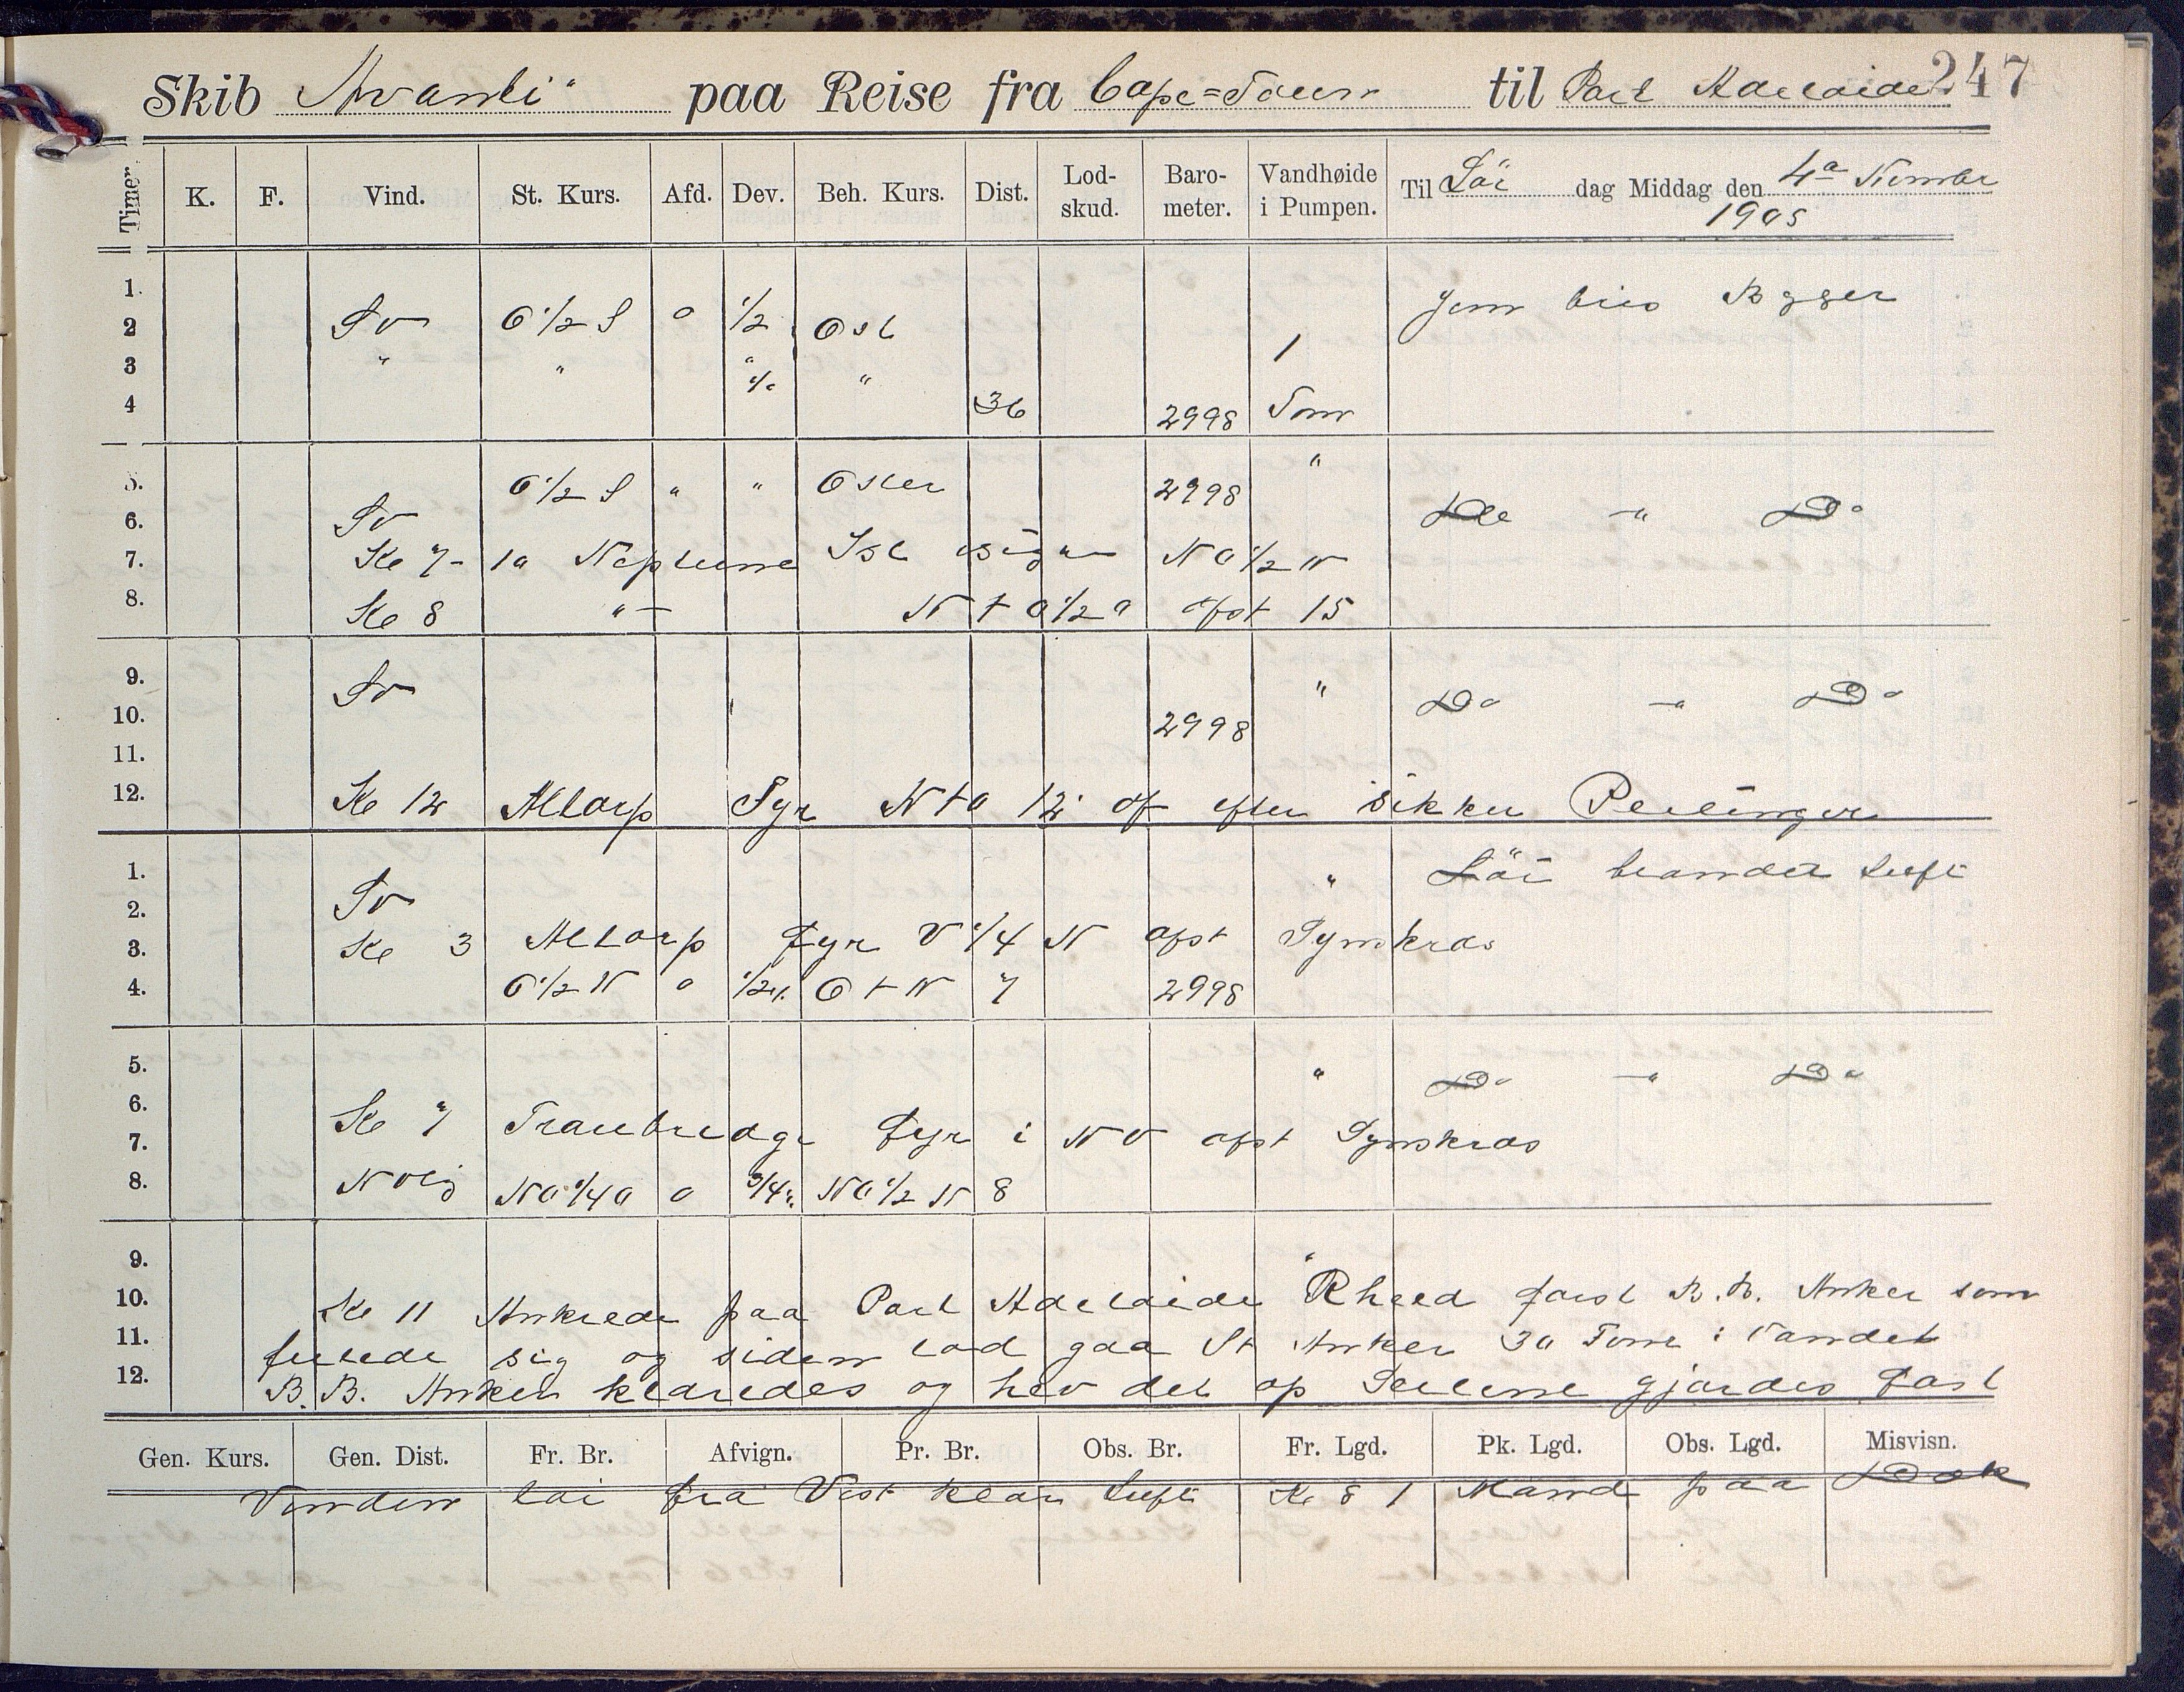 247
Skib Avanti" paa Reise fra Cape=Toun til Port Adelaide
Timer. K. F. Vind. St. Kurs. Afd. Dev. Beh. Kurs. Dist. Lod-skud. Baro-meter. Vandhøide i Pumpen. Til Lör dag Middag den 4a Nvmbr 1905
1. Jevn bris Bygger
2 Sv O 1/2 S 0 1/2 Ost 1
3 " " " "
4 36 2998 Tom
5. O 1/2 S " " Oster 2998 "
6. Sv Do " Do
7. Ke 7 - 10 Neptune Isl NO 1/2 N
8. Ke 8 " N t O 1/2 O afst 15
9. Sv " Do " Do
10. 2998
11.
12. Ke 12 Altorp Fyr N t O 12' af efter sikker Peilinger
1. " Löi blandet Luft
2. Sv
3. Ke 3 Altorp Fyr V 1/4 N afst Synskras
4. O 1/2 N 0 1/2 O t N 7 2998
5. " Do " Do
6.
7. Ke 7 Troubredge Fyr i NV afst Synskras
8. NO 1/4 O 0 3/4 NO 1/2 N 8
9. "
10. Ke 11 Ankrede paa Port Adelaide Rhed först B.B. Anker som
11. sig og siden lod gaa St Anker 30 Fvne i Vandet
12. B.B. Anker klaredes og hev det op Seilene gjordes Fast
Gen. Kurs. Gen. Dist. Fr. Br. Afvign. Pr. Br. Obs. Br. Fr. Lgd. Pk. Lgd. Obs. Lgd. Misvisn.
Vinden löi fra Vest klar Luft Ke 8 1 Mand paa Dæk